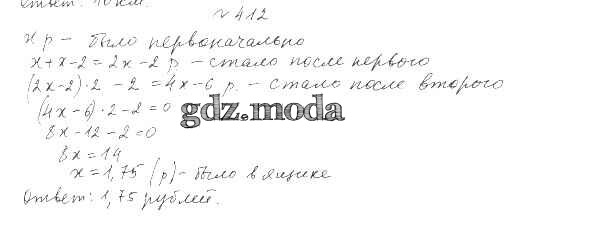 Ответ: 10 км.
№ 412
x р - было первоначально
x+x-2=2x-2 р - стало после первого
(2x-2)·2-2=4x-6 р. - стало после второго
(4x-6)·2-2=0
gdz.moda
8x-12-2=0
8x=14
x=1,75 (р) - было в ящике
Ответ: 1,75 рублей.